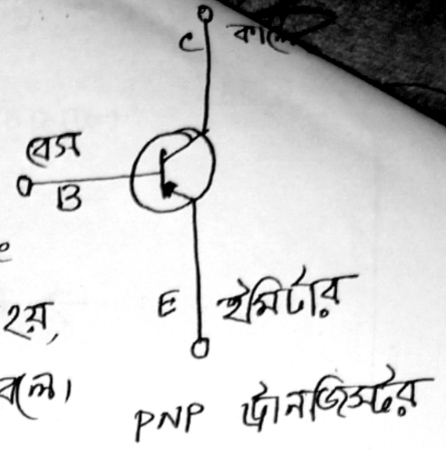 C
বেস
B
E ইমিটার
হয়,
বলে।
PNP ট্রানজিস্টর